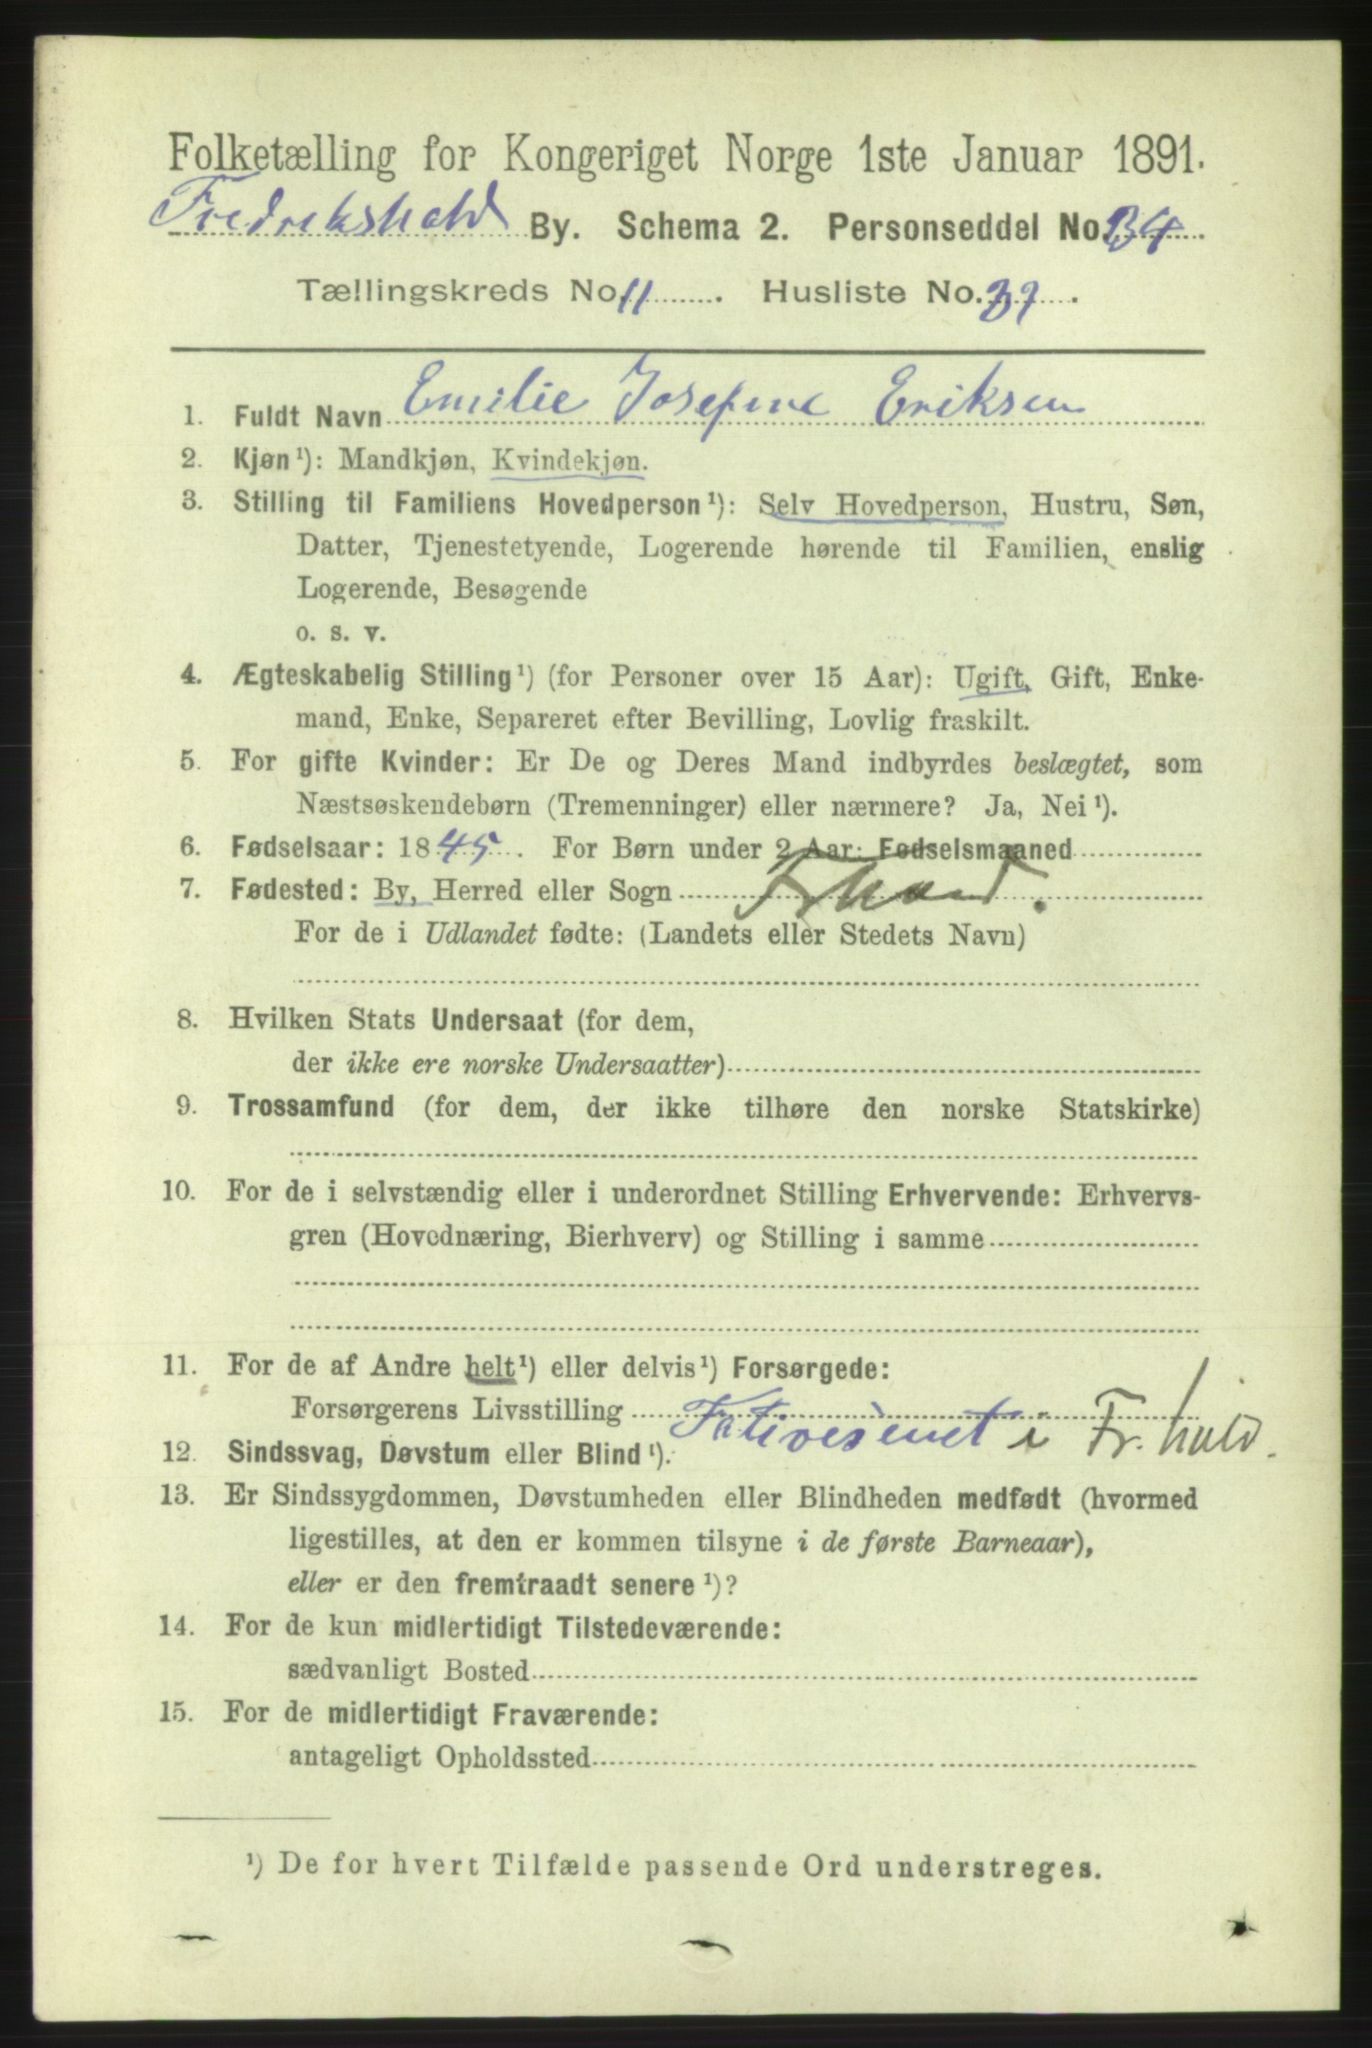 Folketælling for Kongeriget Norge 1ste Januar 1891.
Fredrikshald By. Schema 2. Personseddel No. 234
Tællingskreds No. 11. Husliste No. 39.
1. Fuldt Navn Emilie Josefine Eriksen
2. Kjøn¹): Mandkjøn, Kvindekjøn.
3. Stilling til Familiens Hovedperson¹): Selv Hovedperson, Hustru, Søn,
Datter, Tjenestetyende, Logerende hørende til Familien, enslig
Logerende, Besøgende
o. s. v.
4. Ægteskabelig Stilling¹) (for Personer over 15 Aar): Ugift, Gift, Enke-
mand, Enke, Separeret efter Bevilling, Lovlig fraskilt.
5. For gifte Kvinder: Er De og Deres Mand indbyrdes beslægtet, som
Næstsøskendebørn (Tremenninger) eller nærmere? Ja, Nei¹).
6. Fødselsaar: 1845. For Børn under 2 Aar: Fødselsmaaned
7. Fødested: By, Herred eller Sogn Frhald.
For de i Udlandet fødte: (Landets eller Stedets Navn)
8. Hvilken Stats Undersaat (for dem,
der ikke ere norske Undersaatter)
9. Trossamfund (for dem, der ikke tilhøre den norske Statskirke)
10. For de i selvstændig eller i underordnet Stilling Erhvervende: Erhvervs-
gren (Hovednæring, Bierhverv) og Stilling i samme
11. For de af Andre helt¹) eller delvis¹) Forsørgede:
Forsørgerens Livsstilling Fativesenet i Fr.hald.
12. Sindssvag, Døvstum eller Blind¹).
13. Er Sindssygdommen, Døvstumheden eller Blindheden medfødt (hvormed
ligestilles, at den er kommen tilsyne i de første Barneaar),
eller er den fremtraadt senere¹)?
14. For de kun midlertidigt Tilstedeværende:
sædvanligt Bosted
15. For de midlertidigt Fraværende:
antageligt Opholdssted
¹) De for hvert Tilfælde passende Ord understreges.